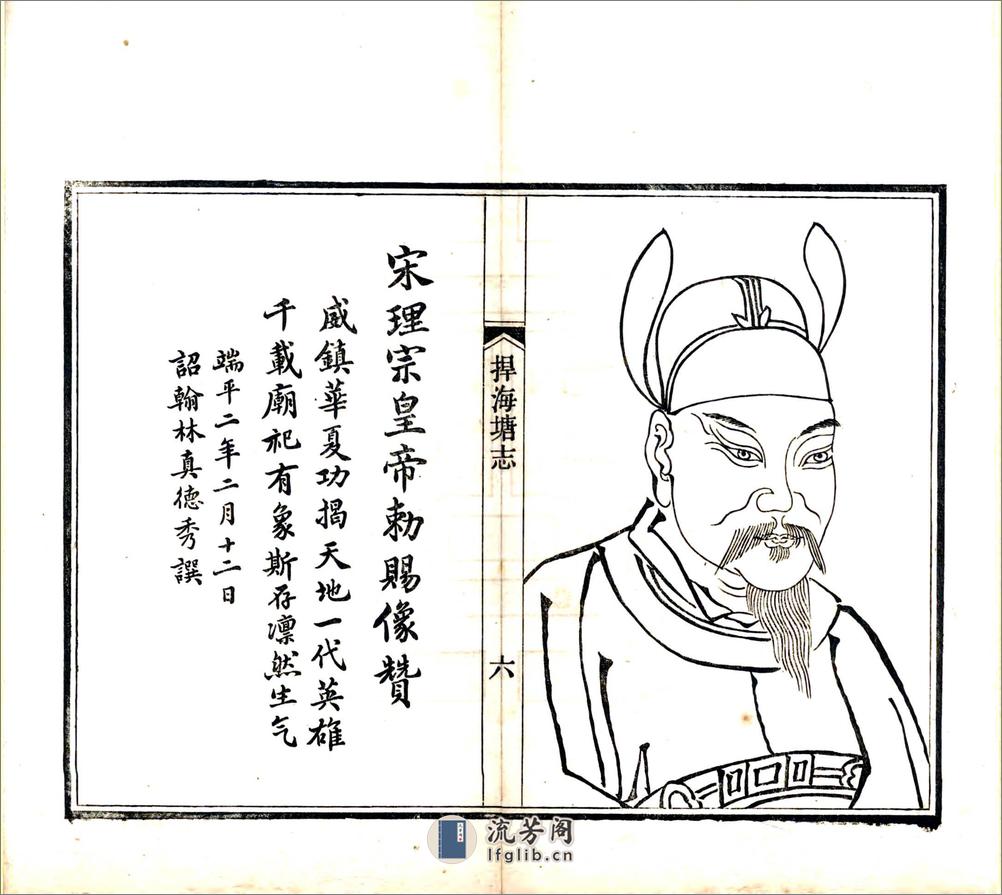 宋理宗皇帝勅賜像贊
威鎮華夏功揭天地一代英雄
千載廟祀有象斯存凛然生气
端平二年二月十二日
詔翰林真德秀譔
捍海塘志
六
流芳阁
lfglib.cn